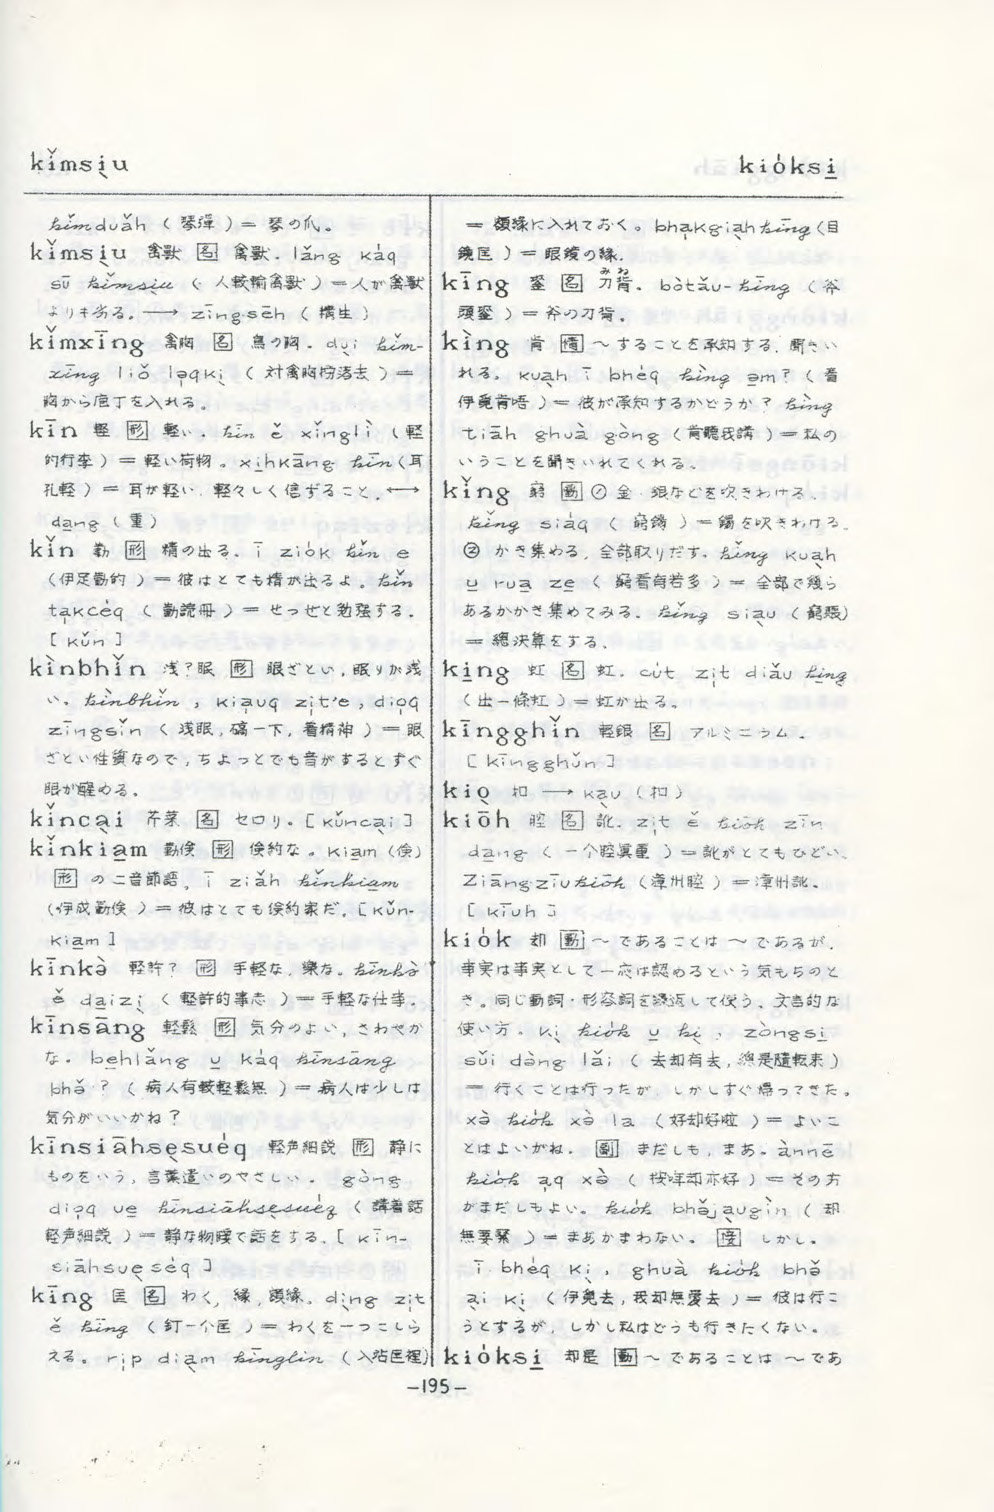 kǐmsi̖u
kiȯksi̱
kǐmduǎh (琴弾)=琴の爪。
kǐmsi̖u 禽獣 [名] 禽獣. lǎng kȧq
sū kǐmsi̖u (人較輸禽獣)=人が禽獣
よりも劣る。⟶ zīngsēh (精生)
kǐmxīng 禽胸 [名] 鳥の胸. du̖i kǐm-
xīng liǒ lə̖qki̖ (対禽胸 落去)=
胸から庖丁を入れる。
kīn 軽 [形] 軽い. kīn ě xǐnglì (軽
的行李)=軽い荷物。xi̱hkāng kīn (耳
孔軽)=耳が軽い. 軽々しく信ずること. ⟷
da̱ng (重)
kǐn 勤 [形] 精の出る. ī ziȯk kǐn e
(伊足勤的)=彼はとても精が出るよ。kǐn
ta̖kcėq (勤読冊)=せっせと勉強する。
[kǔn]
kìnbhǐn 浅?眠 [形] 眼ざとい, 眠りが浅
い. kìnbhǐn, kia̖uq zi̖t'e, dio̖q
zīngsǐn (浅眠, 一下, 着精神)=眼
ざとい性質なので, ちょっとでも音がするとすぐ
眼が醒める。
kǐnca̖i 芹菜 [名] セロリ。[kǔnca̖i]
kǐnkia̱m 勤倹 [形] 倹約な. kia̱m (倹)
[形] の二音節語. ī ziǎh kǐnkia̱m
(伊成勤倹)=彼はとても倹約家だ。[kǔn-
kia̱m]
kīnkə̀ 軽許? [形] 手軽な, 楽な。kīnkə̀
ě da̱izi̖ (軽許的事志)=手軽な仕事.
kīnsāng 軽鬆 [形] 気分のよい, さわやか
な。be̱hlǎng u̱ kȧq kīnsāng
bhə̌? (病人有較軽鬆無)=病人は少しは
気分がいいかね?
kīnsiāhse̖suėq 軽声細説 [形] 静に
ものをいう, 言葉遣いのやさしい. gòng
dio̖q ue̱ kīnsiāhse̖suėq (講着話
軽声細説)=静な物腰で話をする. [kīn-
siāhsue̖sėq]
kīng 匡 [名] わく, 縁, 額縁. di̱ng zi̖t
ě kīng (釘一个匡)=わくを一つこしら
える。ri̖p dia̱m kīnglin (入 匡裡)
=額縁に入れておく。bha̖kgi̖ahkīng (目
鏡匡)=眼鏡の縁.
kīng [名] 刀背。みね bòtǎu-kīng (斧
頭 )=斧の刀背.
kìng 肯 [情] ~することを承知する. 聞きい
れる。kua̖h ī bhėq kìng a̱m? (看
伊 肯唔)=彼が承知するかどうか? kìng
tiāh ghuà gòng (肯聴我講)=私の
いうことを聞きいれてくれる。
kǐng 窮 [動] ① 金・銀などを吹きわける.
kǐng siaq (窮錫)=錫を吹きわける.
② かき集める. 全部取りだす. kǐng kua̖h
u̱ rua̱ ze̱ (窮看有若多)=全部で幾ら
あるかかき集めてみる. kǐng sia̖u (窮賬)
=総決算をする.
ki̱ng 虹 [名] 虹. cu̇t zi̖t diǎu ki̱ng
(出一條虹)=虹が出る。
kīngghǐn 軽銀 [名] アルミニウム.
[kīngghǔn]
kio̖ 扣 ⟶ ka̖u (扣)
kiōh 腔 [名] 訛. zi̖t ě kiōh zīn
da̱ng (一个腔真重)=訛がとてもひどい.
Ziāngziu kiōh (漳州腔)=漳州訛.
[kīuh]
kiȯk 却 [動] ~であることは~であるが.
事実は事実として一応は認めるという気もちのと
き. 同じ動詞・形容詞を繰返して使う. 文言的な
使い方. ki̖ kiȯk u̱ ki̖, zòngsi̱
sǔi dàng lǎi (去却有去, 總是隨転来)
=行くことは行ったが, しかしすぐ帰ってきた。
xə̀ kiȯk xə̀ la (好却好啦)=よいこ
とはよいがね. [副] まだしも, まあ. ànnē
kiȯk a̖q xə̀ (按年却亦好)=その方
がまだしもよい。kiȯk bhə̌ja̖ugìn (却
無要緊)=まあかまわない。[接] しかし.
ī bhėq ki̖, ghuà kiȯk bhə̌
a̖i ki̖ (伊 去, 我却無愛去)=彼は行こ
うとするが, しかし私はどうも行きたくない。
kiȯksi̱ 却是 [動] ~であることは~であ
-195-